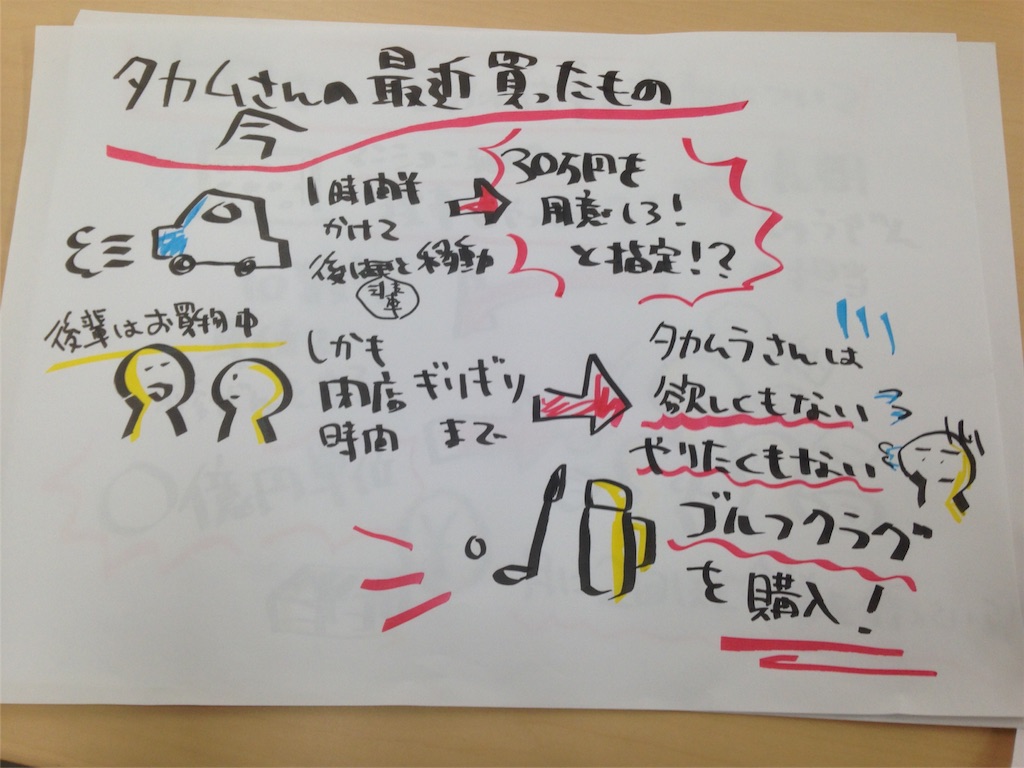 タカムさんの最近買ったもの
今
1時間半
かけて
後輩と移動
30万円を
用意しろ!
と指定!?
後輩はお買物中
しかも
閉店ギリギリ
時間まで
タカムラさんは
欲しくもない
やりたくもない
ゴルフクラブ
を購入!